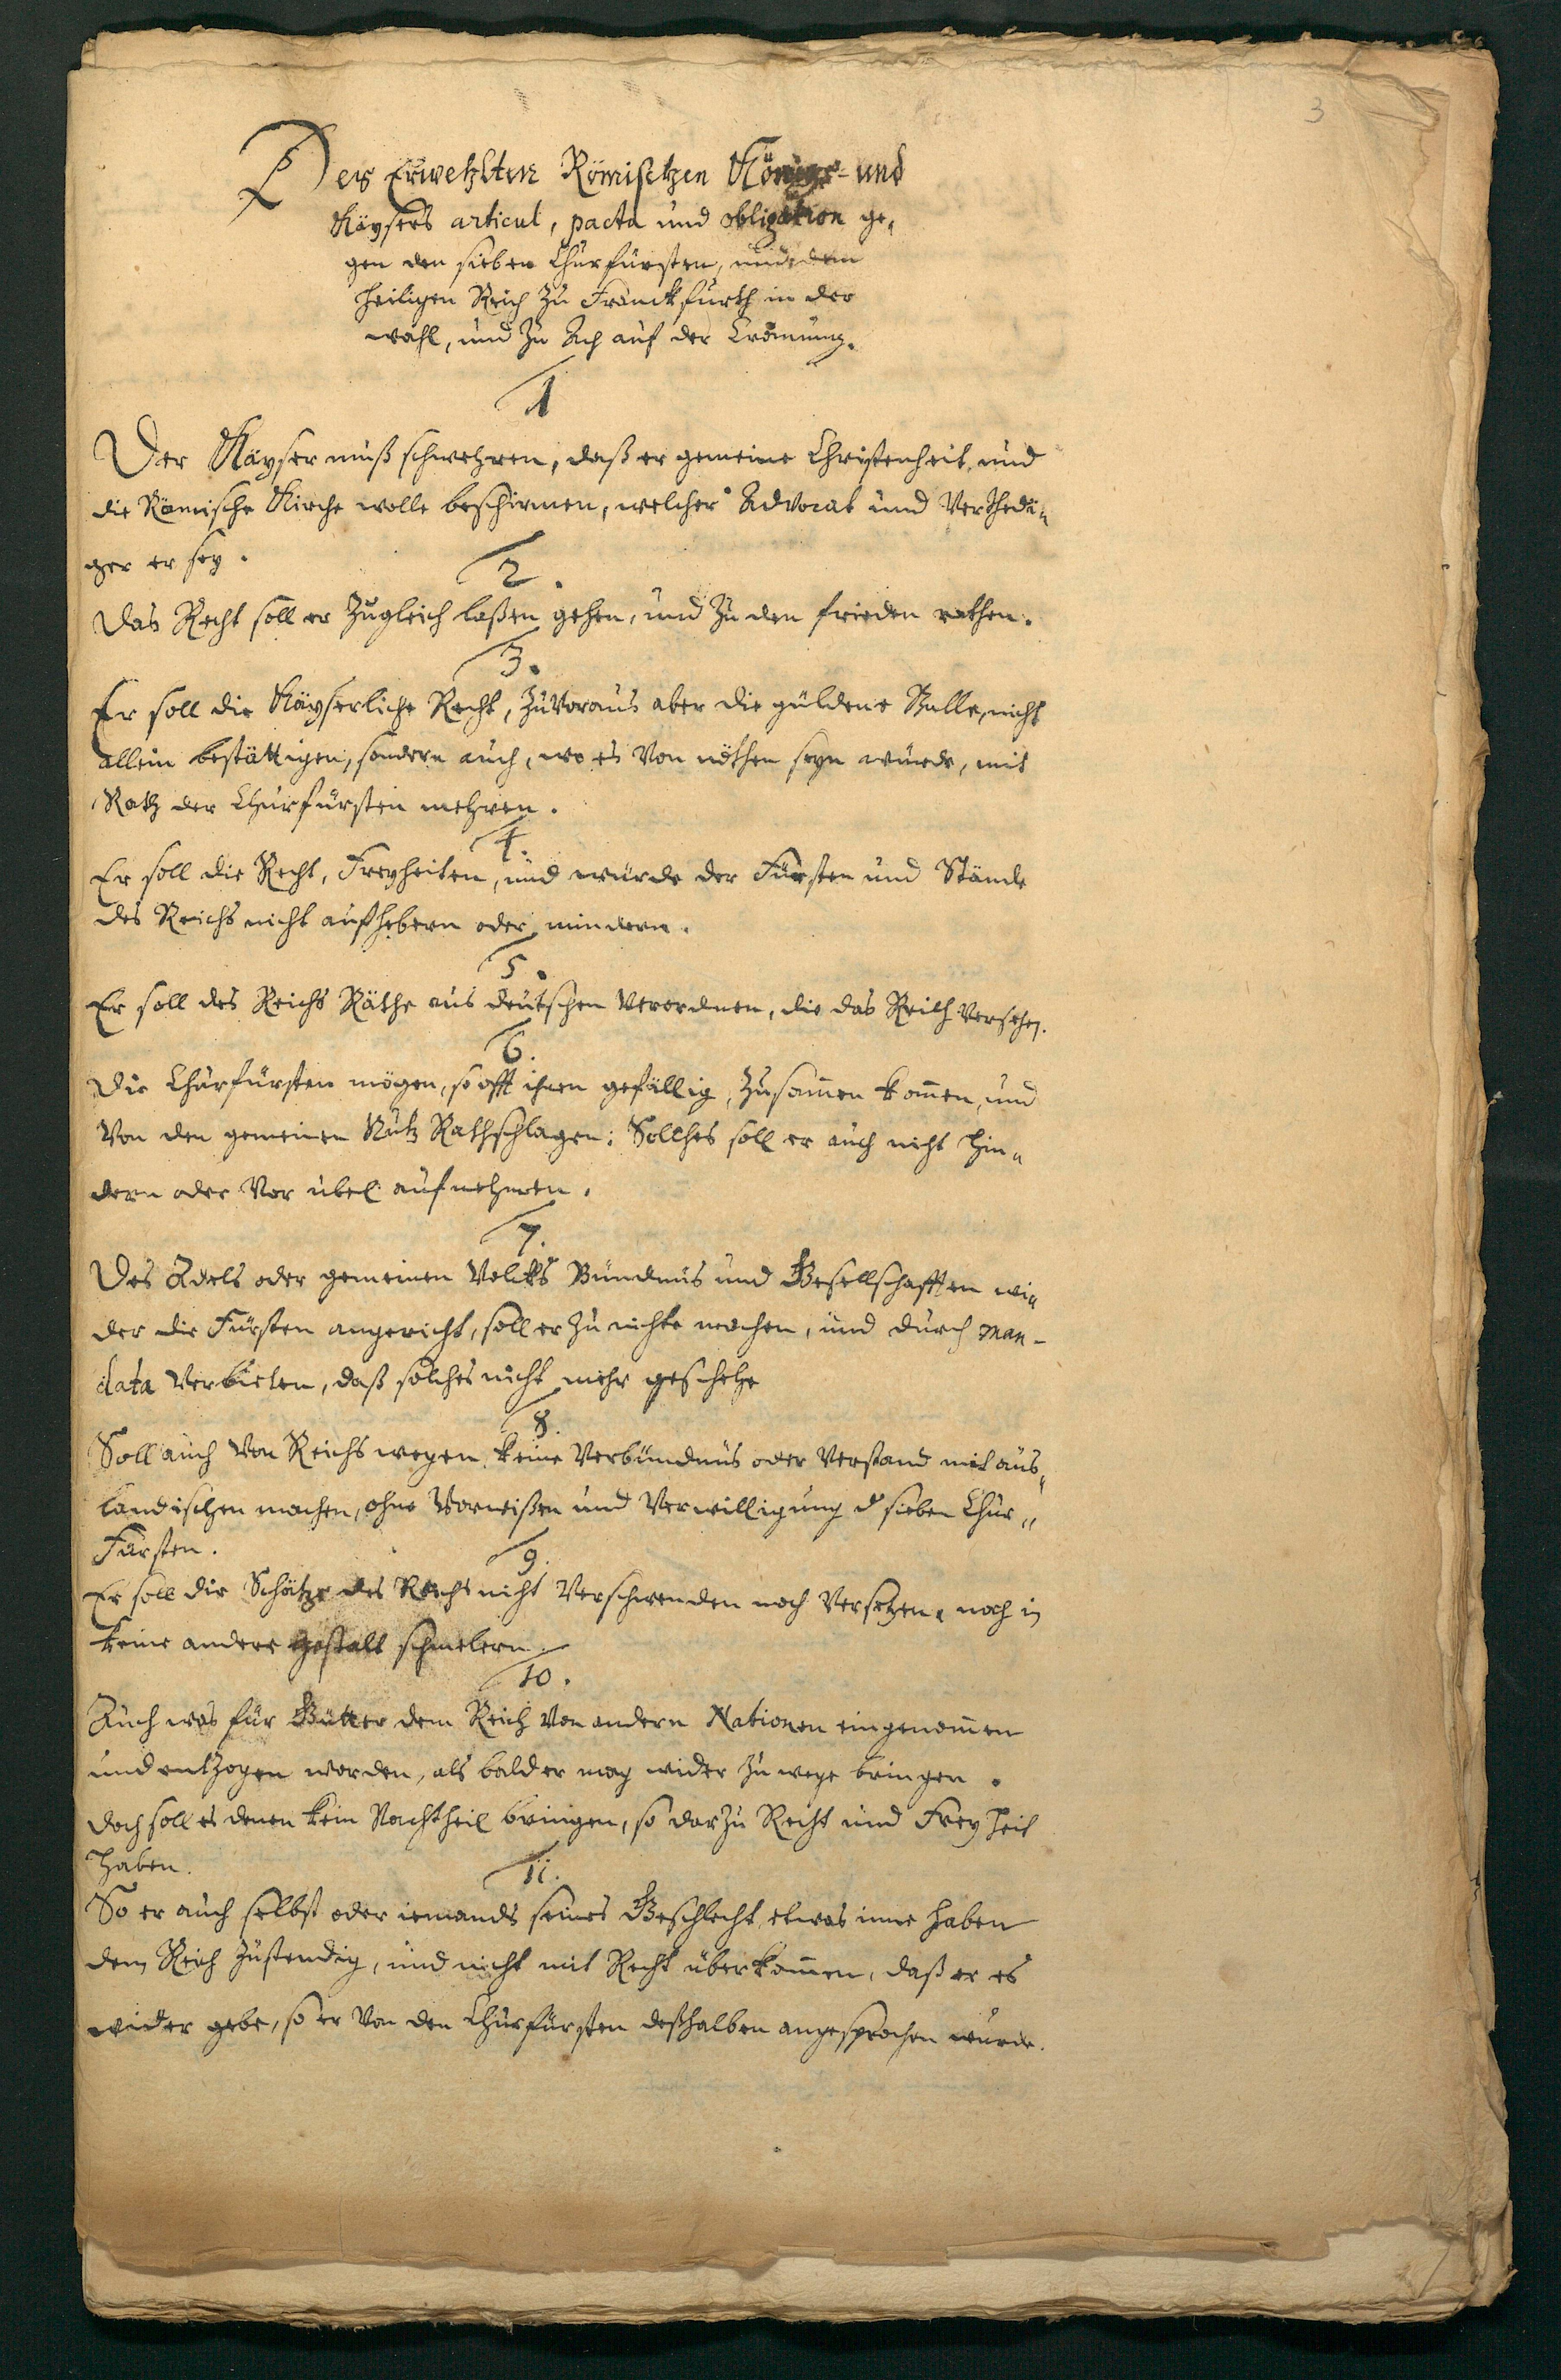 3
Des Erwehlten Römischen Königs- und
Käysers articul, pacta und obligation ge-
gen den sieben Churfürsten, und dem
heiligen Reich zu Franckfurth in der
wahl, und zu Ach auf der Crönung.
1
Der Käyser muß schwehren, daß er gemeine Christenheit und
die Römische Kirche wolle beschirmen, welcher Advocat und Verthedi-
ger er sey.
2.
Das Recht soll er zugleich laßen gehen, und zu den frieden rathen.
3.
Er soll die Käyserliche Recht, zuvoraus aber die güldene Bulle, nicht
allein bestättigen, sondern auch, wo es von nöthen seyn würde, mit
Rath der Churfürsten mehren.
4.
Er soll die Recht, Freyheiten, und würde der Fürsten und Stände
des Reichs nicht aufhebern oder mindern.
5.
Er soll des Reichs Räthe aus deutschen verordnen, die das Reich versehen.
6.
Die Churfürsten mögen, so offt ihnen gefällig, zusam̅en kom̅en, und
von den gemeinen Nutz Rathschlagen: Solches soll er auch nicht hin-
dern oder vor übel aufnehmen.
7.
Des Adels oder gemeinen Volcks Bündnus und Gesellschafften wi-
der die Fürsten angericht, soll er zu nichte machen, und durch man-
data verbieten, daß solches nicht mehr geschehe
8.
Soll auch von Reichs wegen keine Verbündnus oder Verstand mit aus-
landischen machen, ohne Vorwißen und Verwilligung d sieben Chur-
Fürsten.
9.
Er soll die Schätze des Reichs nicht verschwenden noch versetzen, noch in
keine andere gestalt schmelern.
10.
Auch was für Gütter dem Reich von andern Nationen eingenom̅en
und entzogen worden, als bald er mag wider zu wege bringen.
doch soll es denen kein Nachtheil bringen, so darzu Recht und Freyheit
haben.
11.
So er auch selbst oder iemands seines Geschlecht etwas inne haben
dem Reich zustendig, und nicht mit Recht überkom̅en, daß er es
wider gebe, so er von den Churfürsten deßhalben angesprochen wurde.